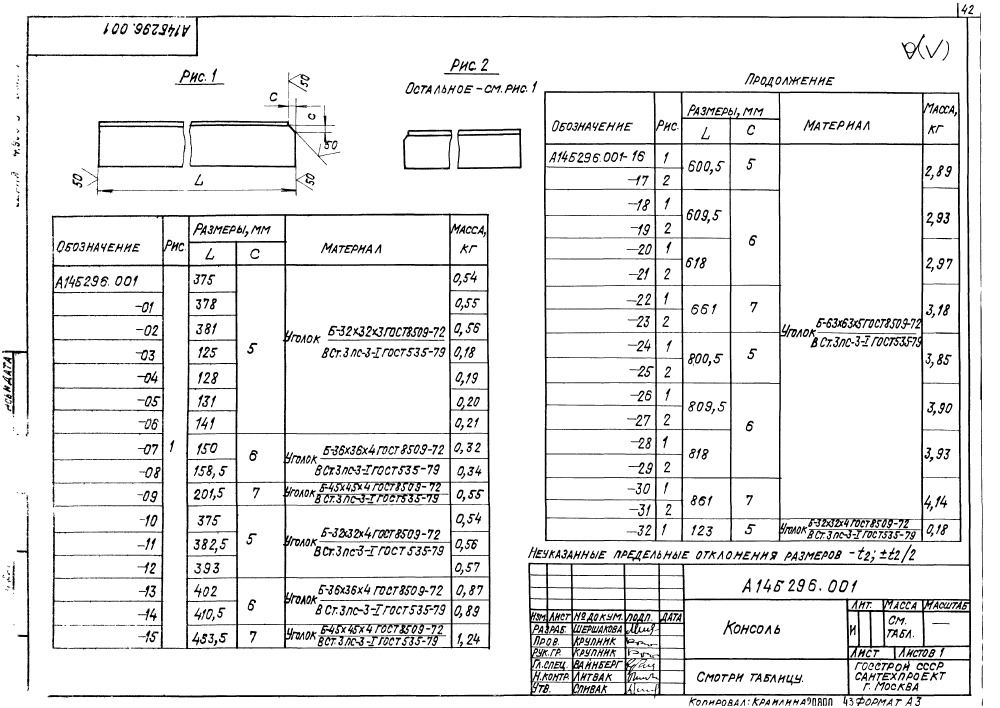 42
А14Б296.001
Рис. 1
Рис. 2
Остальное – см. рис. 1
50
С
С
50
50
L
50
(√)
Обозначение Рис. Размеры, мм Материал Масса, кг
L С
А14Б296.001 1 375 5 Уголок Б-32х32х3 ГОСТ 8509-72 / В Ст.3 пс-3-I ГОСТ 535-79 0,54
-01 378 0,55
-02 381 0,56
-03 125 0,18
-04 128 0,19
-05 131 0,20
-06 141 0,21
-07 150 6 Уголок Б-36х36х4 ГОСТ 8509-72 / В Ст.3 пс-3-I ГОСТ 535-79 0,32
-08 158,5 0,34
-09 201,5 7 Уголок Б-45х45х4 ГОСТ 8509-72 / В Ст.3 пс-3-I ГОСТ 535-79 0,55
-10 375 5 Уголок Б-32х32х4 ГОСТ 8509-72 / В Ст.3 пс-3-I ГОСТ 535-79 0,54
-11 382,5 0,56
-12 393 0,57
-13 402 6 Уголок Б-36х36х4 ГОСТ 8509-72 / В Ст.3 пс-3-I ГОСТ 535-79 0,87
-14 410,5 0,89
-15 453,5 7 Уголок Б-45х45х4 ГОСТ 8509-72 / В Ст.3 пс-3-I ГОСТ 535-79 1,24
Продолжение
Обозначение Рис. Размеры, мм Материал Масса, кг
L С
А14Б296.001-16 1 600,5 5 Уголок Б-63х63х5 ГОСТ 8509-72 / В Ст.3 пс-3-I ГОСТ 535-79 2,89
-17 2
-18 1 609,5 6 2,93
-19 2
-20 1 618 2,97
-21 2
-22 1 661 7 3,18
-23 2
-24 1 800,5 5 3,85
-25 2
-26 1 809,5 6 3,90
-27 2
-28 1 818 3,93
-29 2
-30 1 861 7 4,14
-31 2
-32 1 123 5 Уголок Б-32х32х4 ГОСТ 8509-72 / В Ст.3 пс-3-I ГОСТ 535-79 0,18
Неуказанные предельные отклонения размеров -t2; ±t2/2
А14Б296.001
Изм. Лист № докум. Подп. Дата
Разраб. Шершакова
Пров. Крупник
Рук.гр. Крупник
Гл.спец. Вайнберг
Н.контр. Литвак
Утв. Спивак
Консоль
Лит. Масса Масштаб
И см. табл. —
Лист Листов 1
Смотри таблицу.
Госстрой СССР
Сантехпроект
г. Москва
Копировал: Формат А3